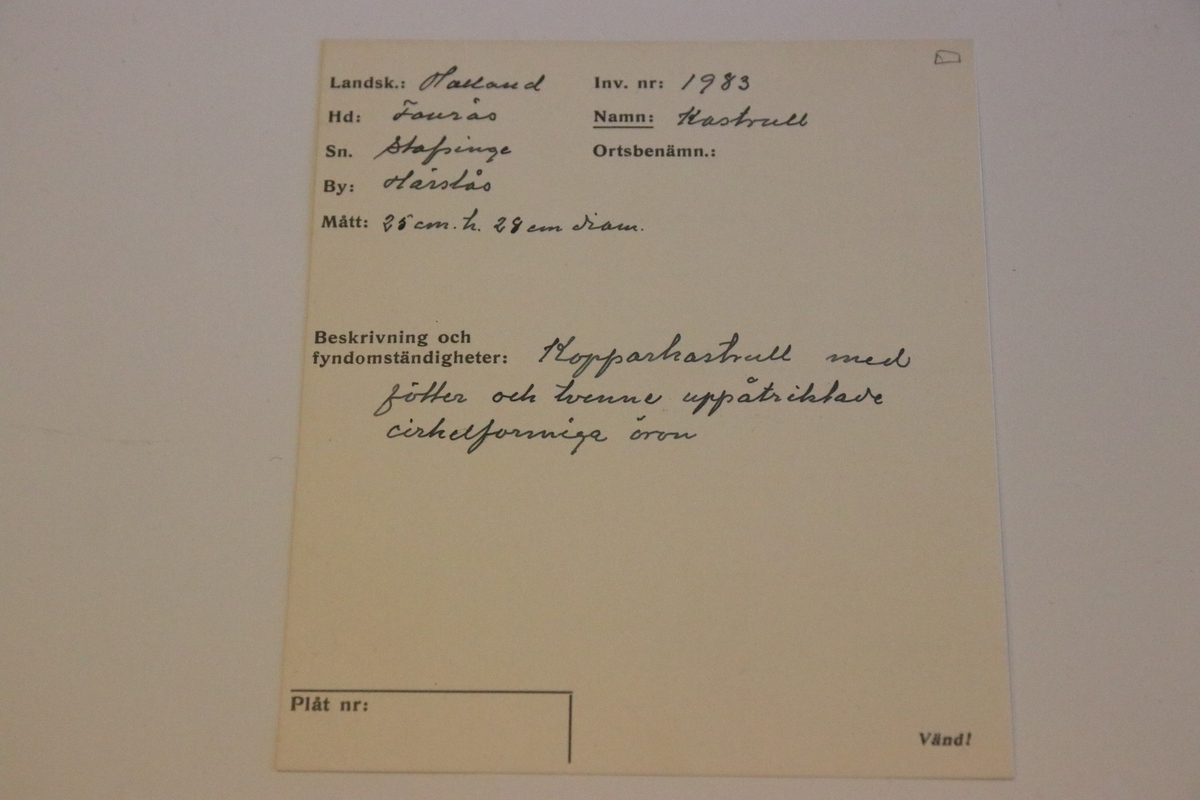 Landsk.: Halland Inv. nr: 1983
Hd: Faurås Namn: Kastrull
Sn. Stafsinge Ortsbenämn.:
By: Härstås
Mått: 25 cm. h. 28 cm diam.
Beskrivning och
fyndomständigheter: Kopparkastrull med
fötter och tvenne uppåtriktade
cirkelformiga öron
Plåt nr:
Vänd!